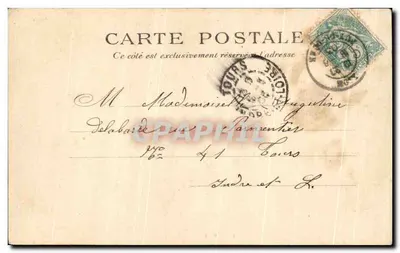 CARTE POSTALE
Ce côté est exclusivement réservé à l'adresse
TOURS
M Mademoiselle Augustine
Delabarde rue Parmentier
No 41 Tours
Indre et L.